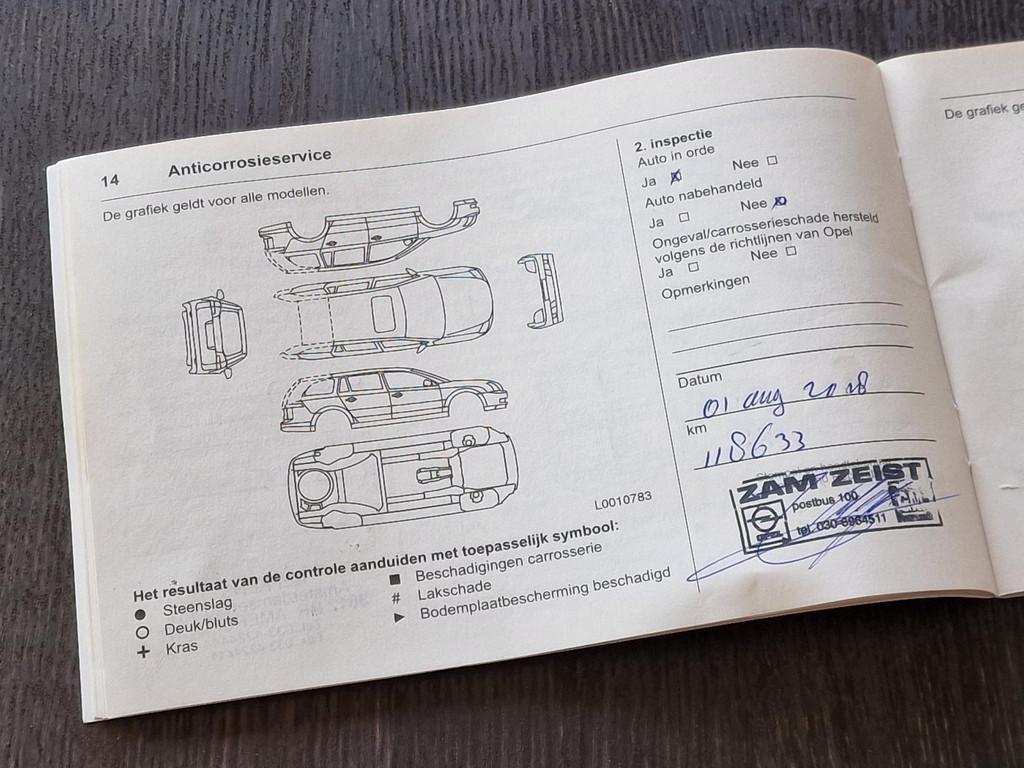 14 Anticorrosieservice
De grafiek geldt voor alle modellen.
L0010783
Het resultaat van de controle aanduiden met toepasselijk symbool:
● Steenslag
○ Deuk/bluts
+ Kras
■ Beschadigingen carrosserie
# Lakschade
► Bodemplaatbescherming beschadigd
2. inspectie
Auto in orde
Ja ☒ Nee ☐
Auto nabehandeld
Ja ☐ Nee ☒
Ongeval/carrosserieschade hersteld
volgens de richtlijnen van Opel
Ja ☐ Nee ☐
Opmerkingen
Datum
01 aug 2018
km
118633
ZAM ZEIST
postbus 100
tel. 030-6964511
De grafiek